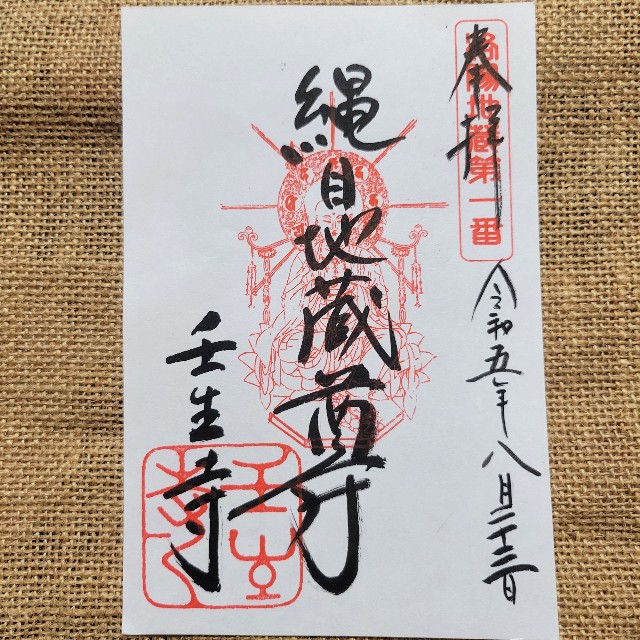 奉拝
洛陽地蔵第一番
令和五年八月二十三日
縄目地蔵尊
壬生寺